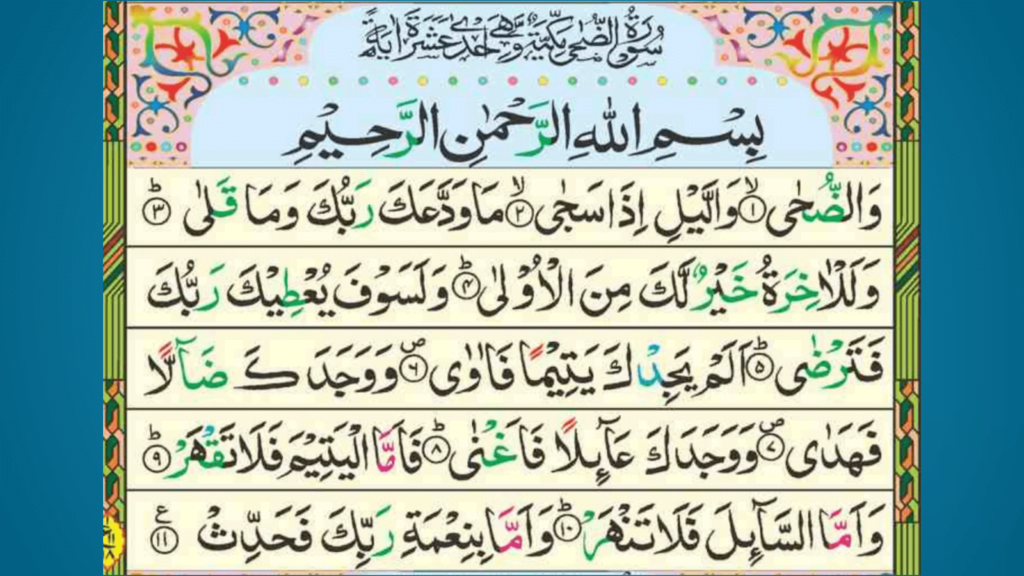 سُوْرَةُ الضُّحٰى مَكِّيَّةٌ وَّهِيَ اِحْدٰى عَشَرَةَ اٰيَةً
بِسْمِ اللّٰهِ الرَّحْمٰنِ الرَّحِيْمِ
وَالضُّحٰى ۙ﴿۱﴾ وَالَّيْلِ اِذَا سَجٰى ۙ﴿۲﴾ مَا وَدَّعَكَ رَبُّكَ وَمَا قَلٰى ؕ﴿۳﴾
وَلَلْاٰخِرَةُ خَيْرٌ لَّكَ مِنَ الْاُوْلٰى ؕ﴿۴﴾ وَلَسَوْفَ يُعْطِيْكَ رَبُّكَ
فَتَرْضٰى ؕ﴿۵﴾ اَلَمْ يَجِدْكَ يَتِيْمًا فَاٰوٰى ۪﴿۶﴾ وَوَجَدَكَ ضَآلًّا
فَهَدٰى ۪﴿۷﴾ وَوَجَدَكَ عَآئِلًا فَاَغْنٰى ؕ﴿۸﴾ فَاَمَّا الْيَتِيْمَ فَلَا تَقْهَرْ ؕ﴿۹﴾
وَاَمَّا السَّآئِلَ فَلَا تَنْهَرْ ؕ﴿۱۰﴾ وَاَمَّا بِنِعْمَةِ رَبِّكَ فَحَدِّثْ ﴿۱۱﴾ ع